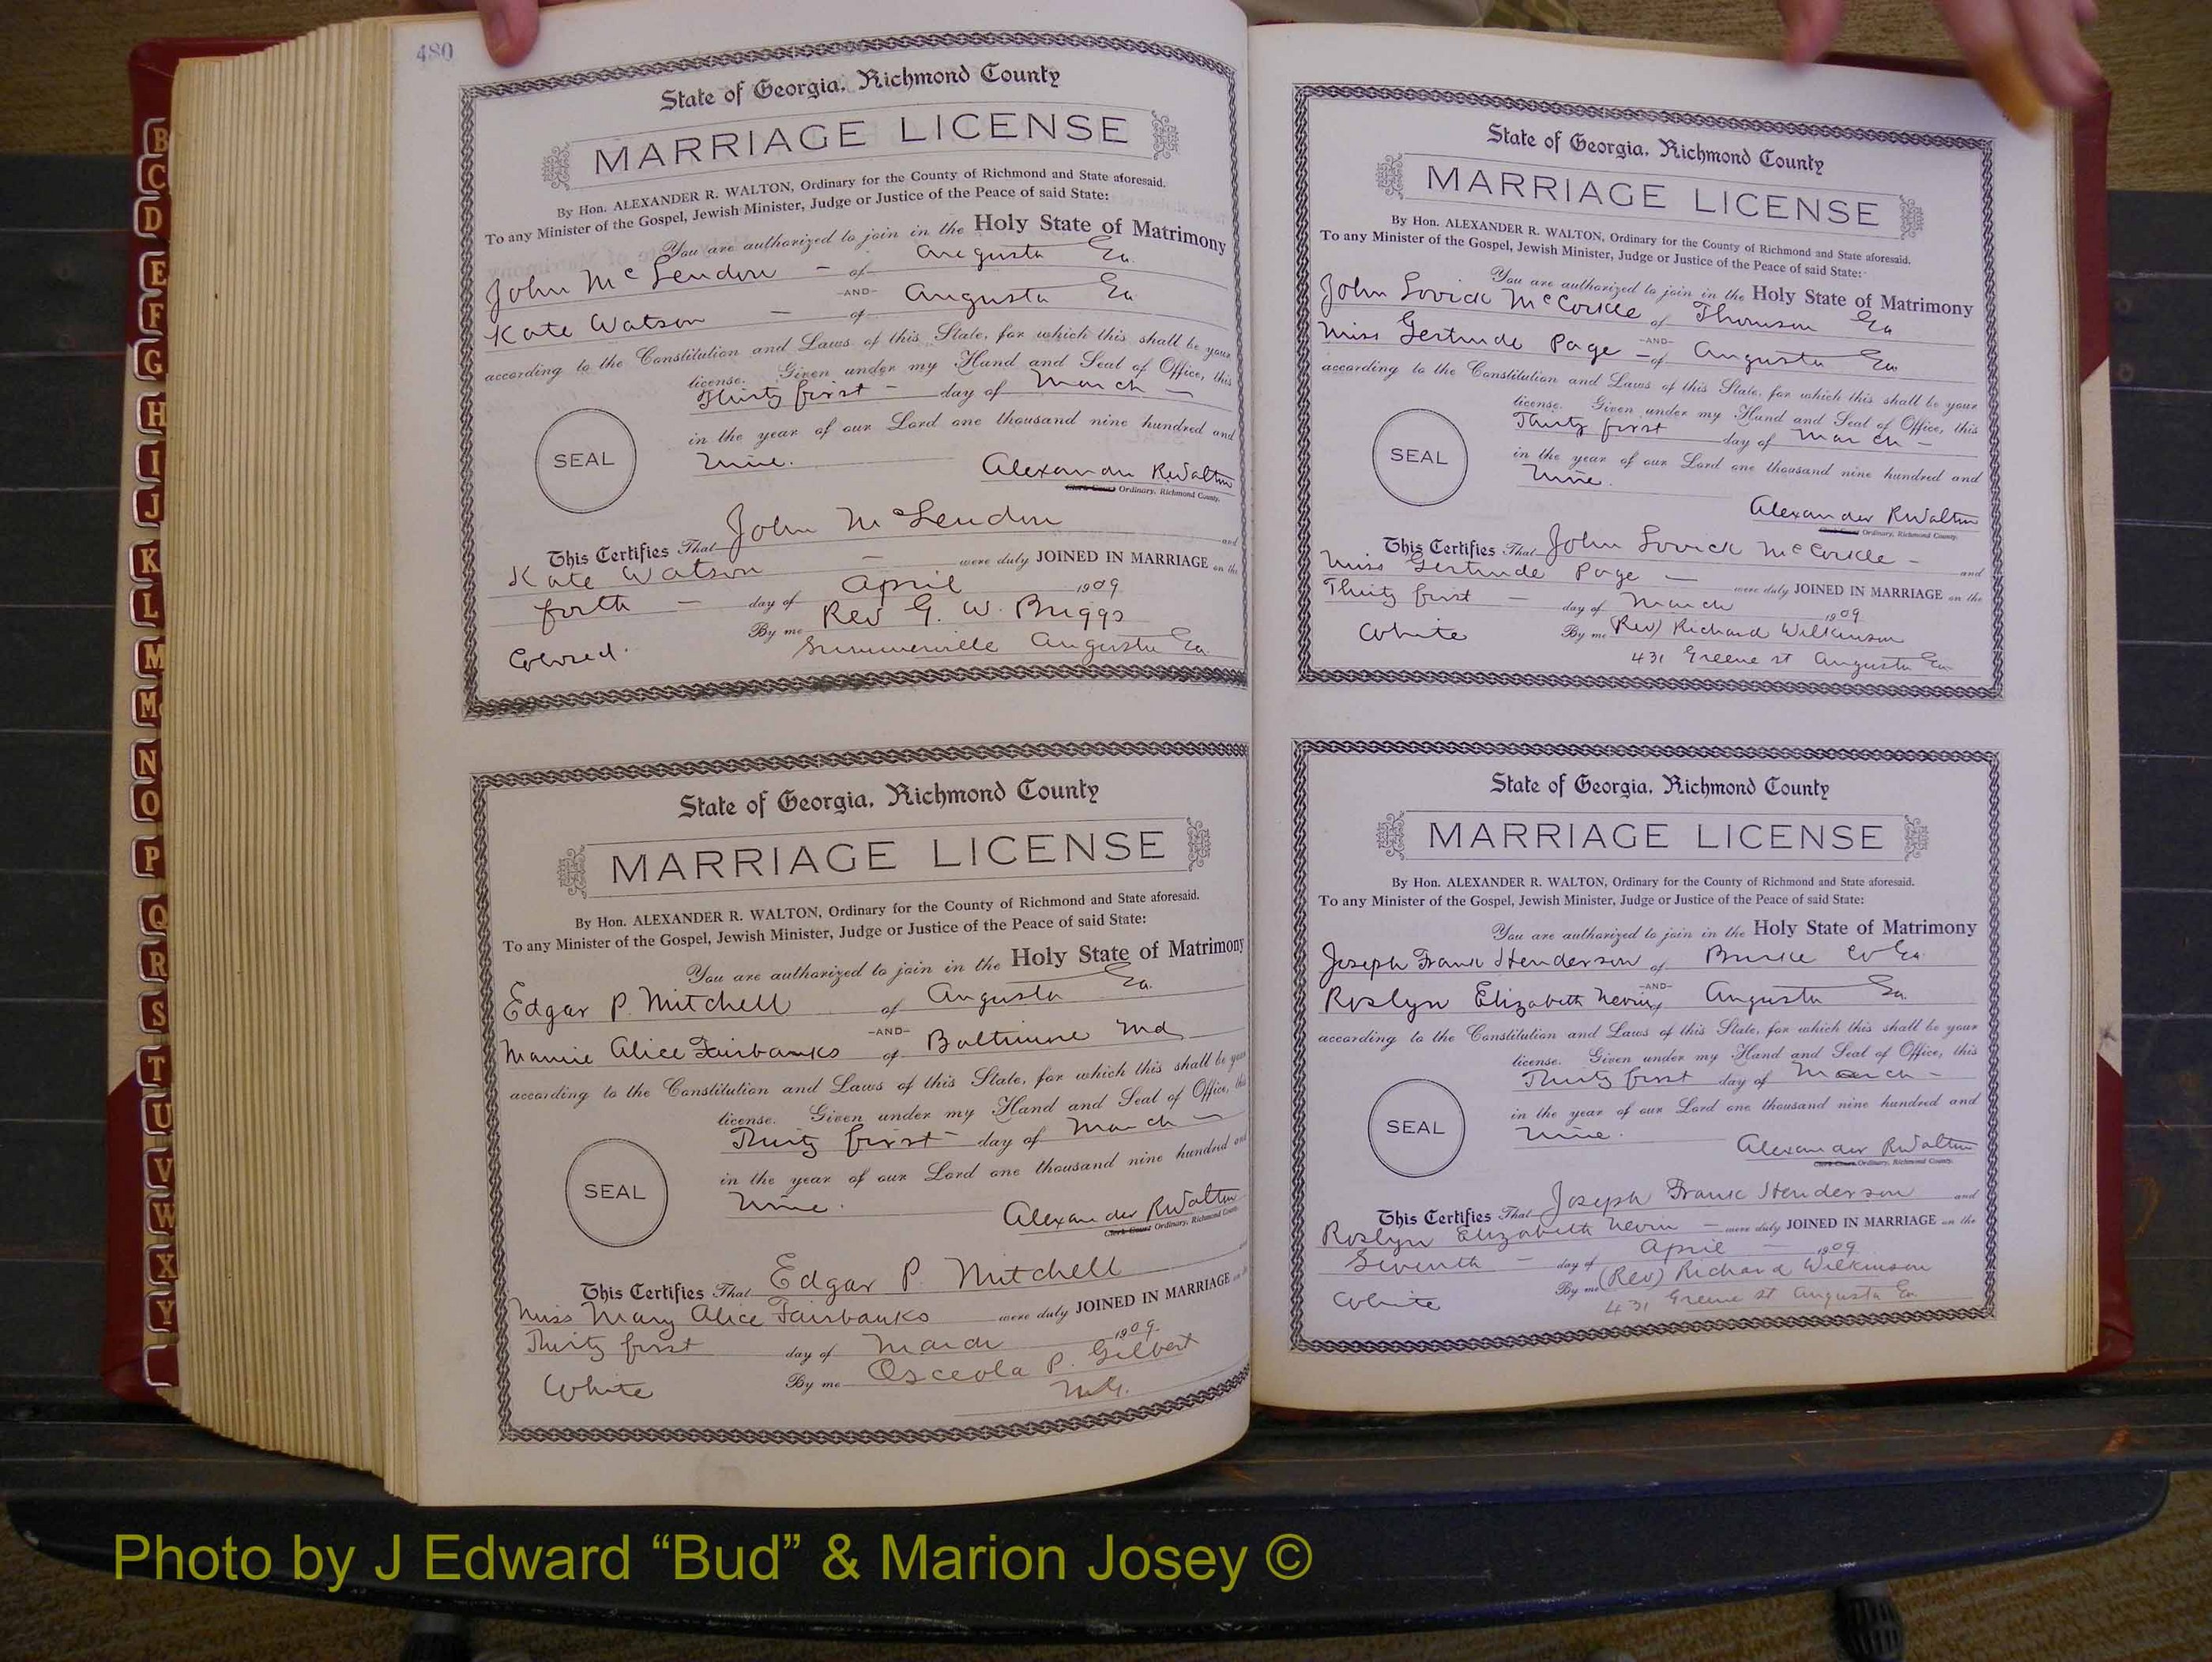 480
State of Georgia, Richmond County
MARRIAGE LICENSE
By Hon. ALEXANDER R. WALTON, Ordinary for the County of Richmond and State aforesaid.
To any Minister of the Gospel, Jewish Minister, Judge or Justice of the Peace of said State:
You are authorized to join in the Holy State of Matrimony
John McLendon - of Augusta Ga
-AND-
Kate Watson - of Augusta Ga
according to the Constitution and Laws of this State, for which this shall be your
license. Given under my Hand and Seal of Office, this
Thirty first - day of March
SEAL
in the year of our Lord one thousand nine hundred and
nine.
Alexander R Walton
Clerk Court Ordinary, Richmond County.
This Certifies That John McLendon and
Kate Watson - were duly JOINED IN MARRIAGE on the
forth - day of April 1909
By me Rev G. W. Briggs
Colored. Summerville Augusta Ga.
State of Georgia, Richmond County
MARRIAGE LICENSE
By Hon. ALEXANDER R. WALTON, Ordinary for the County of Richmond and State aforesaid.
To any Minister of the Gospel, Jewish Minister, Judge or Justice of the Peace of said State:
You are authorized to join in the Holy State of Matrimony
Edgar P. Mitchell of Augusta Ga.
-AND-
Mamie Alice Fairbanks of Baltimore Md
according to the Constitution and Laws of this State, for which this shall be your
license. Given under my Hand and Seal of Office, this
Thirty first - day of March
SEAL
in the year of our Lord one thousand nine hundred and
nine.
Alexander R Walton
Clerk Court Ordinary, Richmond County.
This Certifies That Edgar P. Mitchell
Miss Mary Alice Fairbanks were duly JOINED IN MARRIAGE on the
Thirty first day of March 1909
By me Osceola P. Gilbert
White M.G.
State of Georgia, Richmond County
MARRIAGE LICENSE
By Hon. ALEXANDER R. WALTON, Ordinary for the County of Richmond and State aforesaid.
To any Minister of the Gospel, Jewish Minister, Judge or Justice of the Peace of said State:
You are authorized to join in the Holy State of Matrimony
John Lovick McCorkle of Thomson Ga
-AND-
Miss Gertrude Page - of Augusta Ga
according to the Constitution and Laws of this State, for which this shall be your
license. Given under my Hand and Seal of Office, this
Thirty first day of March -
SEAL
in the year of our Lord one thousand nine hundred and
nine.
Alexander R Walton
Clerk Court Ordinary, Richmond County.
This Certifies That John Lovick McCorkle - and
Miss Gertrude Page - were duly JOINED IN MARRIAGE on the
Thirty first - day of March 1909
By me (Rev) Richard Wilkinson
White 431 Greene st Augusta Ga
State of Georgia, Richmond County
MARRIAGE LICENSE
By Hon. ALEXANDER R. WALTON, Ordinary for the County of Richmond and State aforesaid.
To any Minister of the Gospel, Jewish Minister, Judge or Justice of the Peace of said State:
You are authorized to join in the Holy State of Matrimony
Joseph Frank Henderson of Burke Co Ga
-AND-
Roslyn Elizabeth Nevin of Augusta Ga.
according to the Constitution and Laws of this State, for which this shall be your
license. Given under my Hand and Seal of Office, this
Thirty first day of March -
SEAL
in the year of our Lord one thousand nine hundred and
nine.
Alexander R Walton
Clerk Court Ordinary, Richmond County.
This Certifies That Joseph Frank Henderson and
Roslyn Elizabeth Nevin - were duly JOINED IN MARRIAGE on the
Seventh - day of April - 1909
By me (Rev) Richard Wilkinson
White 431 Greene st Augusta Ga
B
C
D
E
F
G
H
I
J
K
L
M
Mc
N
O
P
Q
R
S
T
U
V
W
X
Y
Photo by J Edward “Bud” & Marion Josey ©